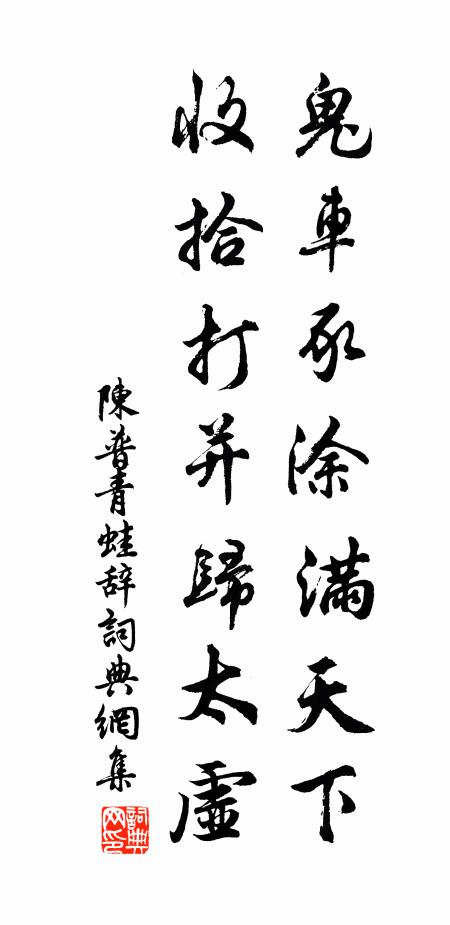 鬼車豕涂滿天下
收拾打并歸太虛
陳普青蛙辞詞典網集
詞典
网印